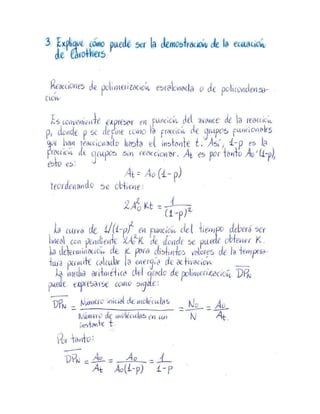 3. Explique cómo puede ser la demostración de la ecuación
de Carothers.
Reacciones de polimerización escalonada o de policondensa-
ción
Es conveniente expresar en función del avance de la reacción
p, donde p se define como la fracción de grupos funcionales
que han reaccionado hasta el instante t. Así, 1-p es la
fracción de grupos sin reaccionar. At es por tanto Ao·(1-p),
esto es:
At = Ao(1-p)
reordenando se obtiene:
2A₀²Kt = 1/(1-p)²
La curva de 1/(1-p)² en función del tiempo deberá ser
lineal con pendiente 2A₀²K de donde se puede obtener K.
La determinación de K para distintos valores de la tempera-
tura permite calcular la energía de activación.
La media aritmética del grado de polimerización, DPN
puede expresarse como sigue:
DPN = Número inicial de moléculas / Número de moléculas en un instante t = No / N = Ao / At.
Por tanto:
DPN = Ao / At = Ao / Ao(1-p) = 1 / 1-p